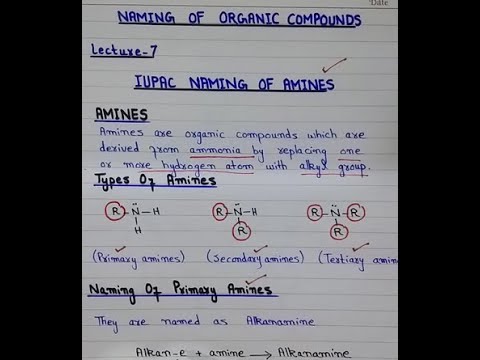 Date
NAMING OF ORGANIC COMPOUNDS
Lecture-7
IUPAC NAMING OF AMINES
AMINES
Amines are organic compounds which are
derived from ammonia by replacing one
or more hydrogen atom with alkyl group.
Types Of Amines
R-N̈-H R-N̈-H R-N̈-R
H R R
(Primary amines) (Secondary amines) (Tertiary amin
Naming Of Primary Amines
They are named as Alkanamine
Alkan-e + amine → Alkanamine